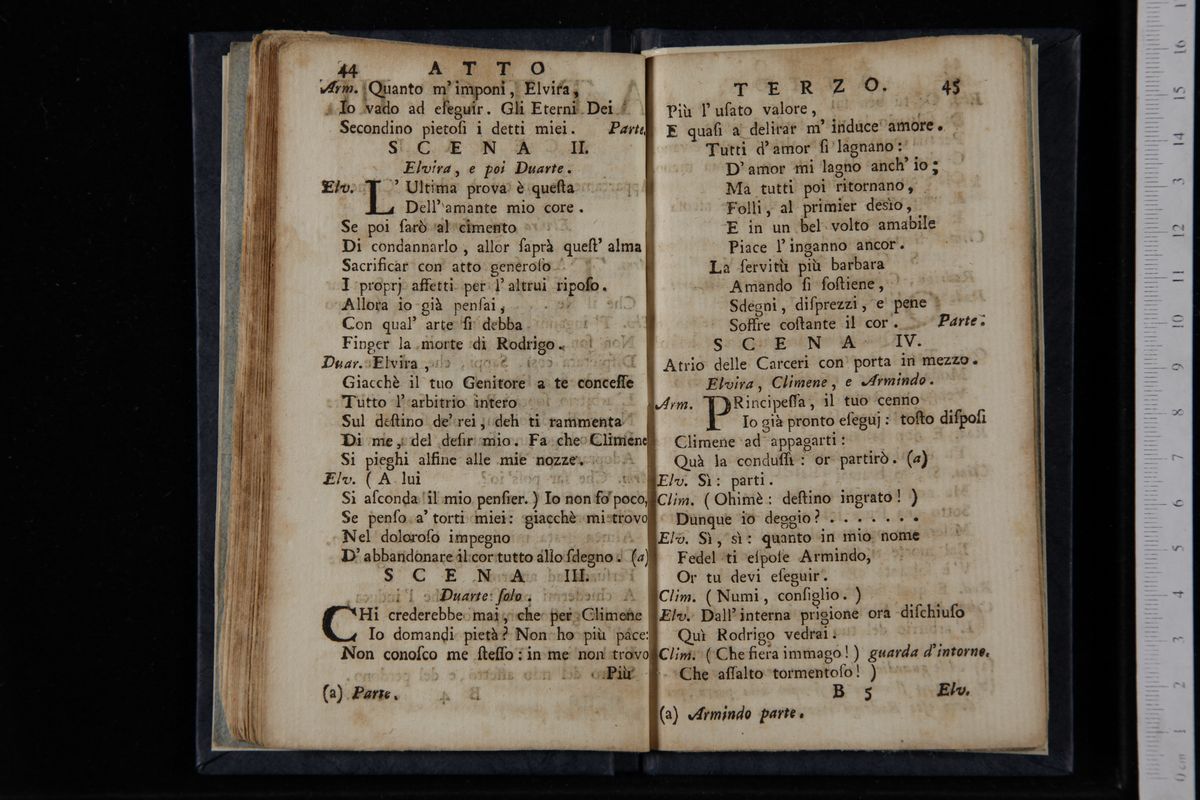 44 ATTO
Arm. Quanto m' imponi, Elvira,
Io vado ad eſeguir. Gli Eterni Dei
Secondino pietoſi i detti miei. Parte.
SCENA II.
Elvira, e poi Duarte.
Elv. L' Ultima prova è queſta
Dell' amante mio core.
Se poi ſarò al cimento
Di condannarlo, allor ſaprà queſt' alma
Sacrificar con atto generoſo
I proprj affetti per l' altrui ripoſo.
Allora io già penſai,
Con qual' arte ſi debba
Finger la morte di Rodrigo.
Duar. Elvira,
Giacchè il tuo Genitore a te conceſſe
Tutto l' arbitrio intero
Sul deſtino de' rei, deh ti rammenta
Di me, del deſir mio. Fa che Climene
Si pieghi alfine alle mie nozze.
Elv. (A lui
Si aſconda il mio penſier.) Io non ſo poco,
Se penſo a' torti miei: giacchè mi trovo
Nel doloroſo impegno
D' abbandonare il cor tutto allo ſdegno. (a)
SCENA III.
Duarte ſolo.
CHi crederebbe mai, che per Climene
Io domandi pietà? Non ho più pace:
Non conoſco me ſteſſo: in me non trovo
Più
(a) Parte.
TERZO. 45
Più l' uſato valore,
E quaſi a delirar m' induce amore.
Tutti d' amor ſi lagnano:
D' amor mi lagno anch' io;
Ma tutti poi ritornano,
Folli, al primier desìo,
E in un bel volto amabile
Piace l' inganno ancor.
La ſervitù più barbara
Amando ſi ſoſtiene,
Sdegni, diſprezzi, e pene
Soffre coſtante il cor. Parte.
SCENA IV.
Atrio delle Carceri con porta in mezzo.
Elvira, Climene, e Armindo.
Arm. PRincipeſſa, il tuo cenno
Io già pronto eſeguj: toſto diſpoſi
Climene ad appagarti:
Quà la conduſſi: or partirò. (a)
Elv. Sì: parti.
Clim. (Ohimè: deſtino ingrato!)
Dunque io deggio? . . . . . . .
Elv. Sì, sì: quanto in mio nome
Fedel ti eſpoſe Armindo,
Or tu devi eſeguir.
Clim. (Numi, conſiglio.)
Elv. Dall' interna prigione ora diſchiuſo
Quì Rodrigo vedrai.
Clim. (Che fiera immago!) guarda d'intorno.
Che aſſalto tormentoſo! )
B 5 Elv.
(a) Armindo parte.